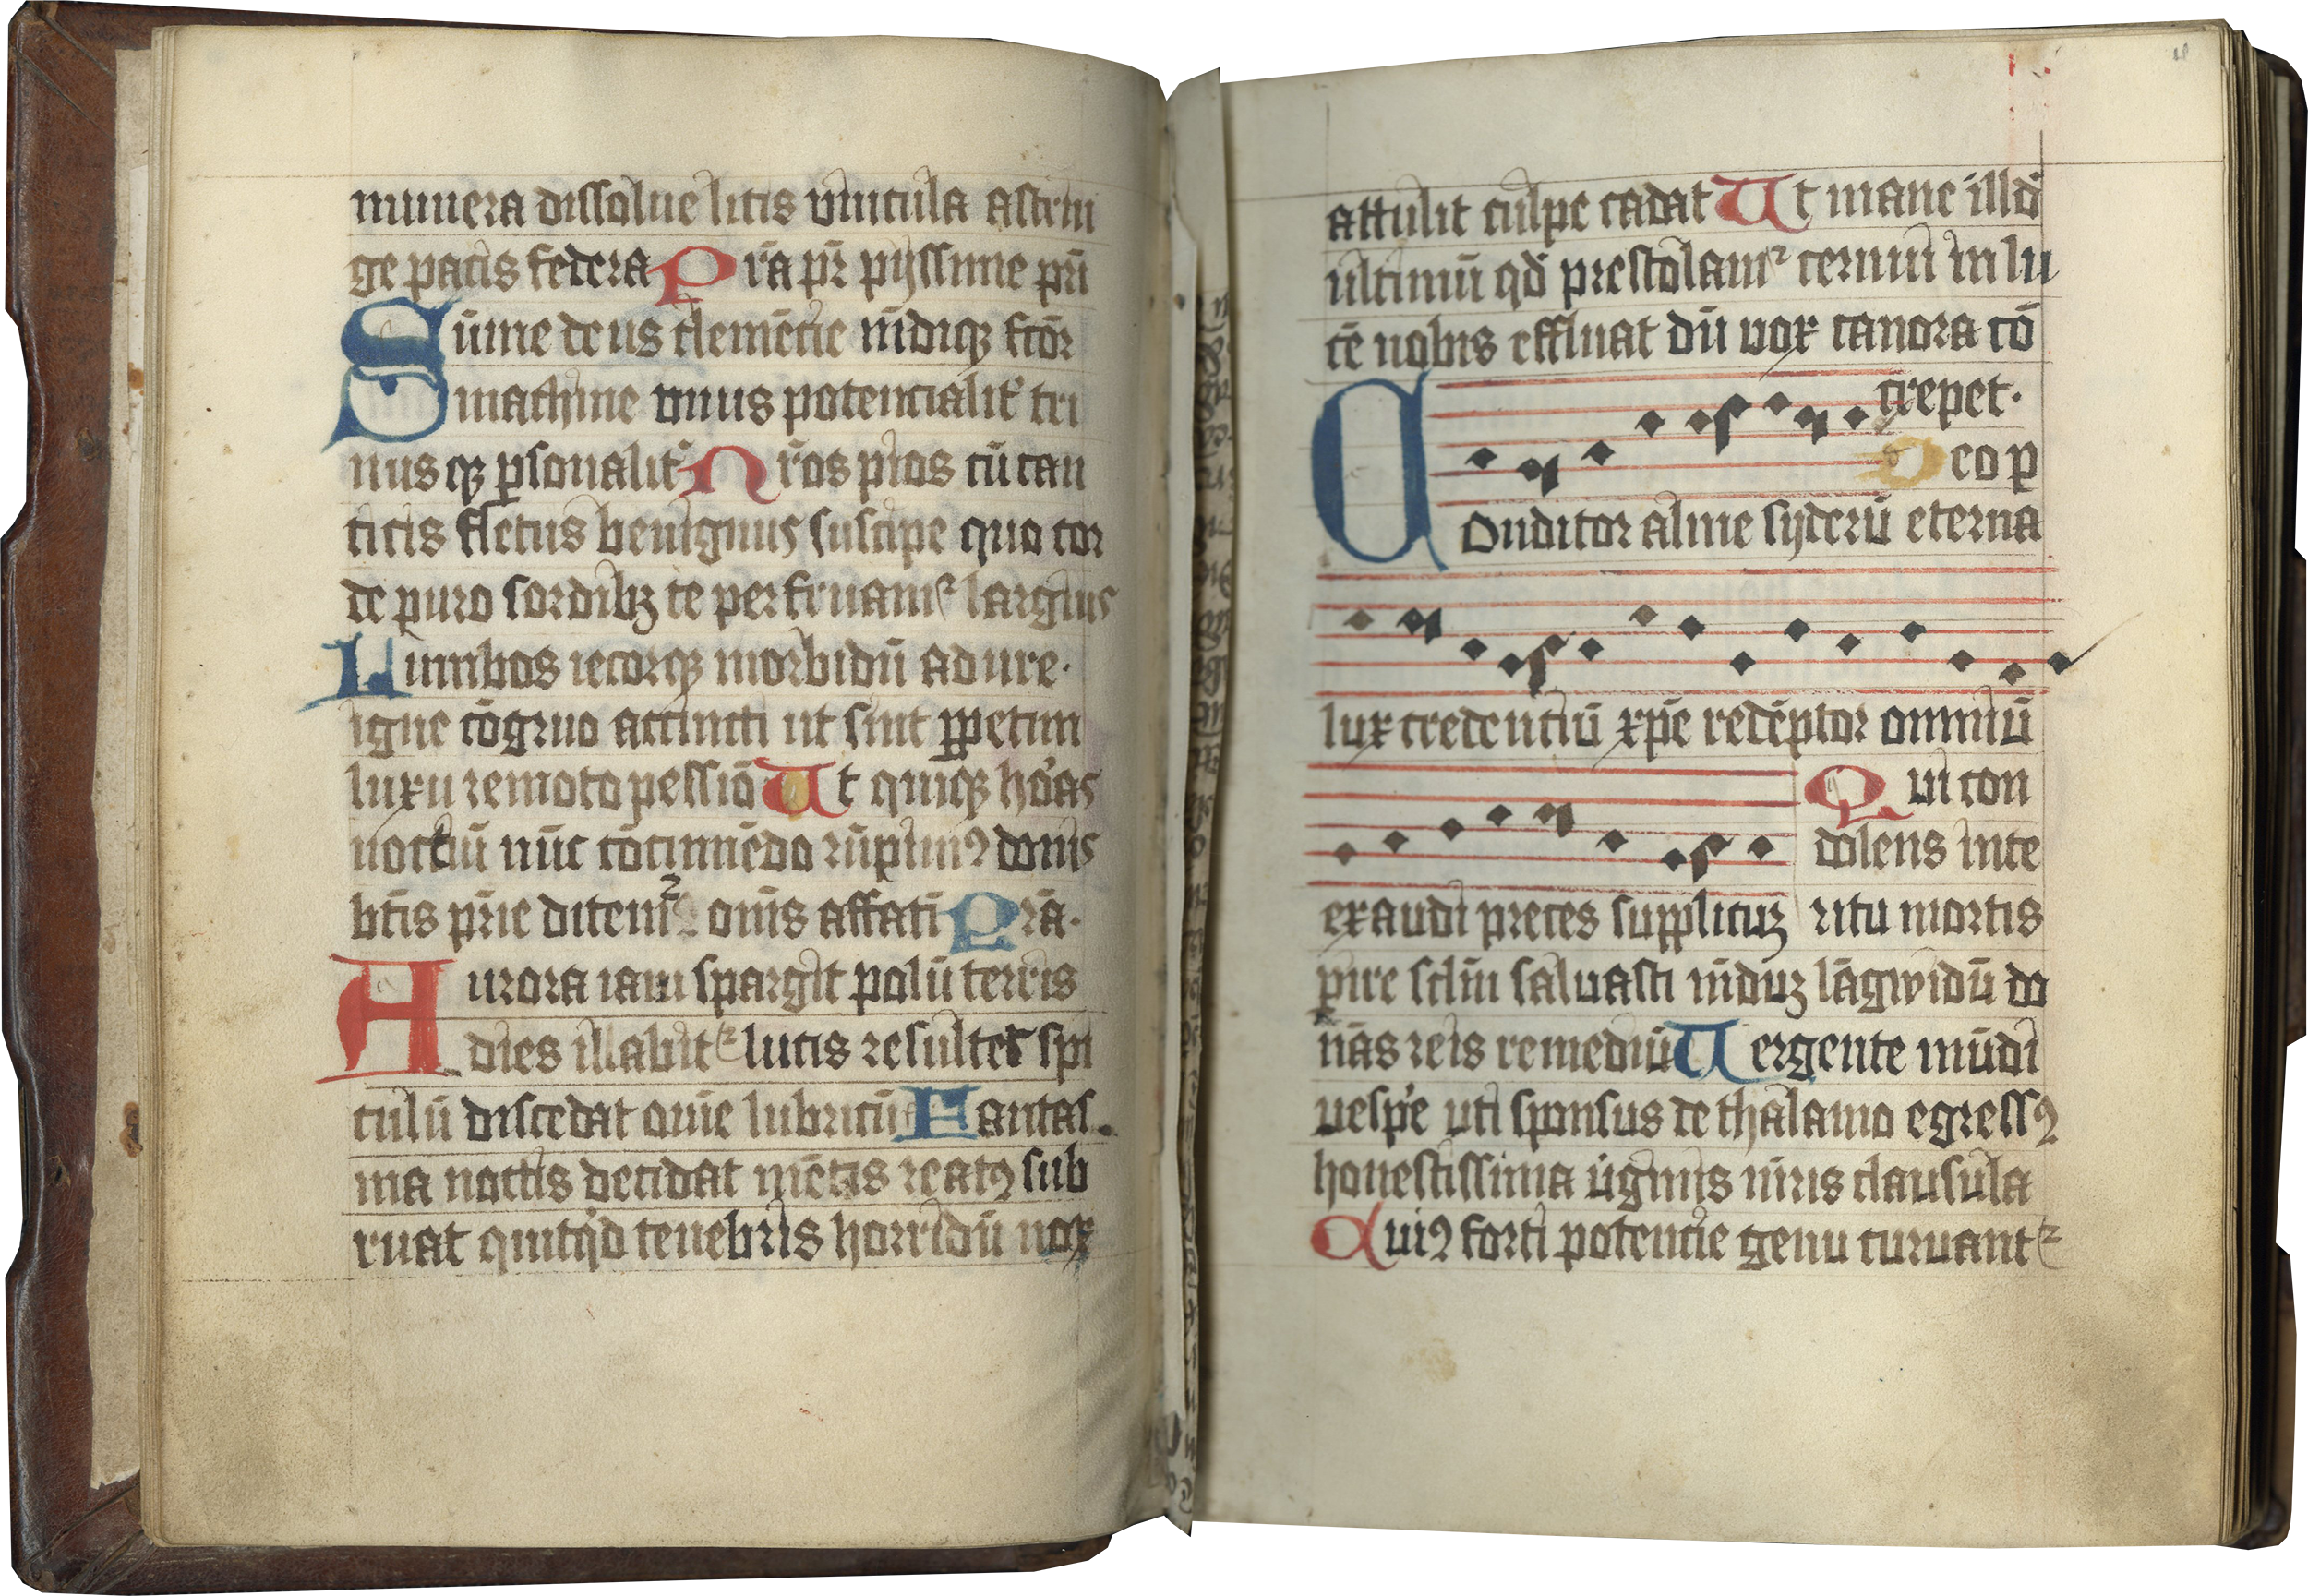 munera dissolue litis vincula astrin
ge pacis federa P rā pr̄ pyssime pri
Sūme deus clemēcie mūdiqꝫ fcōr
machine vnus potencialit̓ tri
nus qꝫ ꝑsonalit̓ Nr̄os pios cū can
ticis fletus benignus suscipe quo cor
de puro sordibꝫ te perfruamᷣ largius
Lumbos iecorqꝫ morbidū adure.
igne cōgruo accincti ut sint ꝑpetim
luxu remoto pessīo Ut quiqꝫ ho̓as
noctiū nūc cōcinnēdo rūpimꝰ donis
bt̄is pr̄ie ditemᷣ omīs affati Prā.
Aurora iam spargit polū terris
dies illabitᷣ lucis resultet spi
culū discedat om̄e lubricū Fantas
ma noctis decidat mētis reatꝰ sub
ruat quitqd tenebris horridū nox
attulit culpe cadat Ut mane illd̓
ultimū qd̓ prestolamᷣ cernui in lu
cē nobis effluat dū vox canora cō
crepet.
Deo p
Conditor alme syderū eterna
lux credentiū xp̄e redēptor omniū
Qui con
dolens inte
exaudi preces supplicuꝫ ritu mortis
ꝑire sclm̄ saluasti mūduꝫ lāgwidū do
nās reis remediū Uergente mūdi
uesp̓e uti sponsus de thalamo egressꝰ
honestissima uirginis mr̄is clausula
Cuiꝰ forti potencie genu curuantᷣ